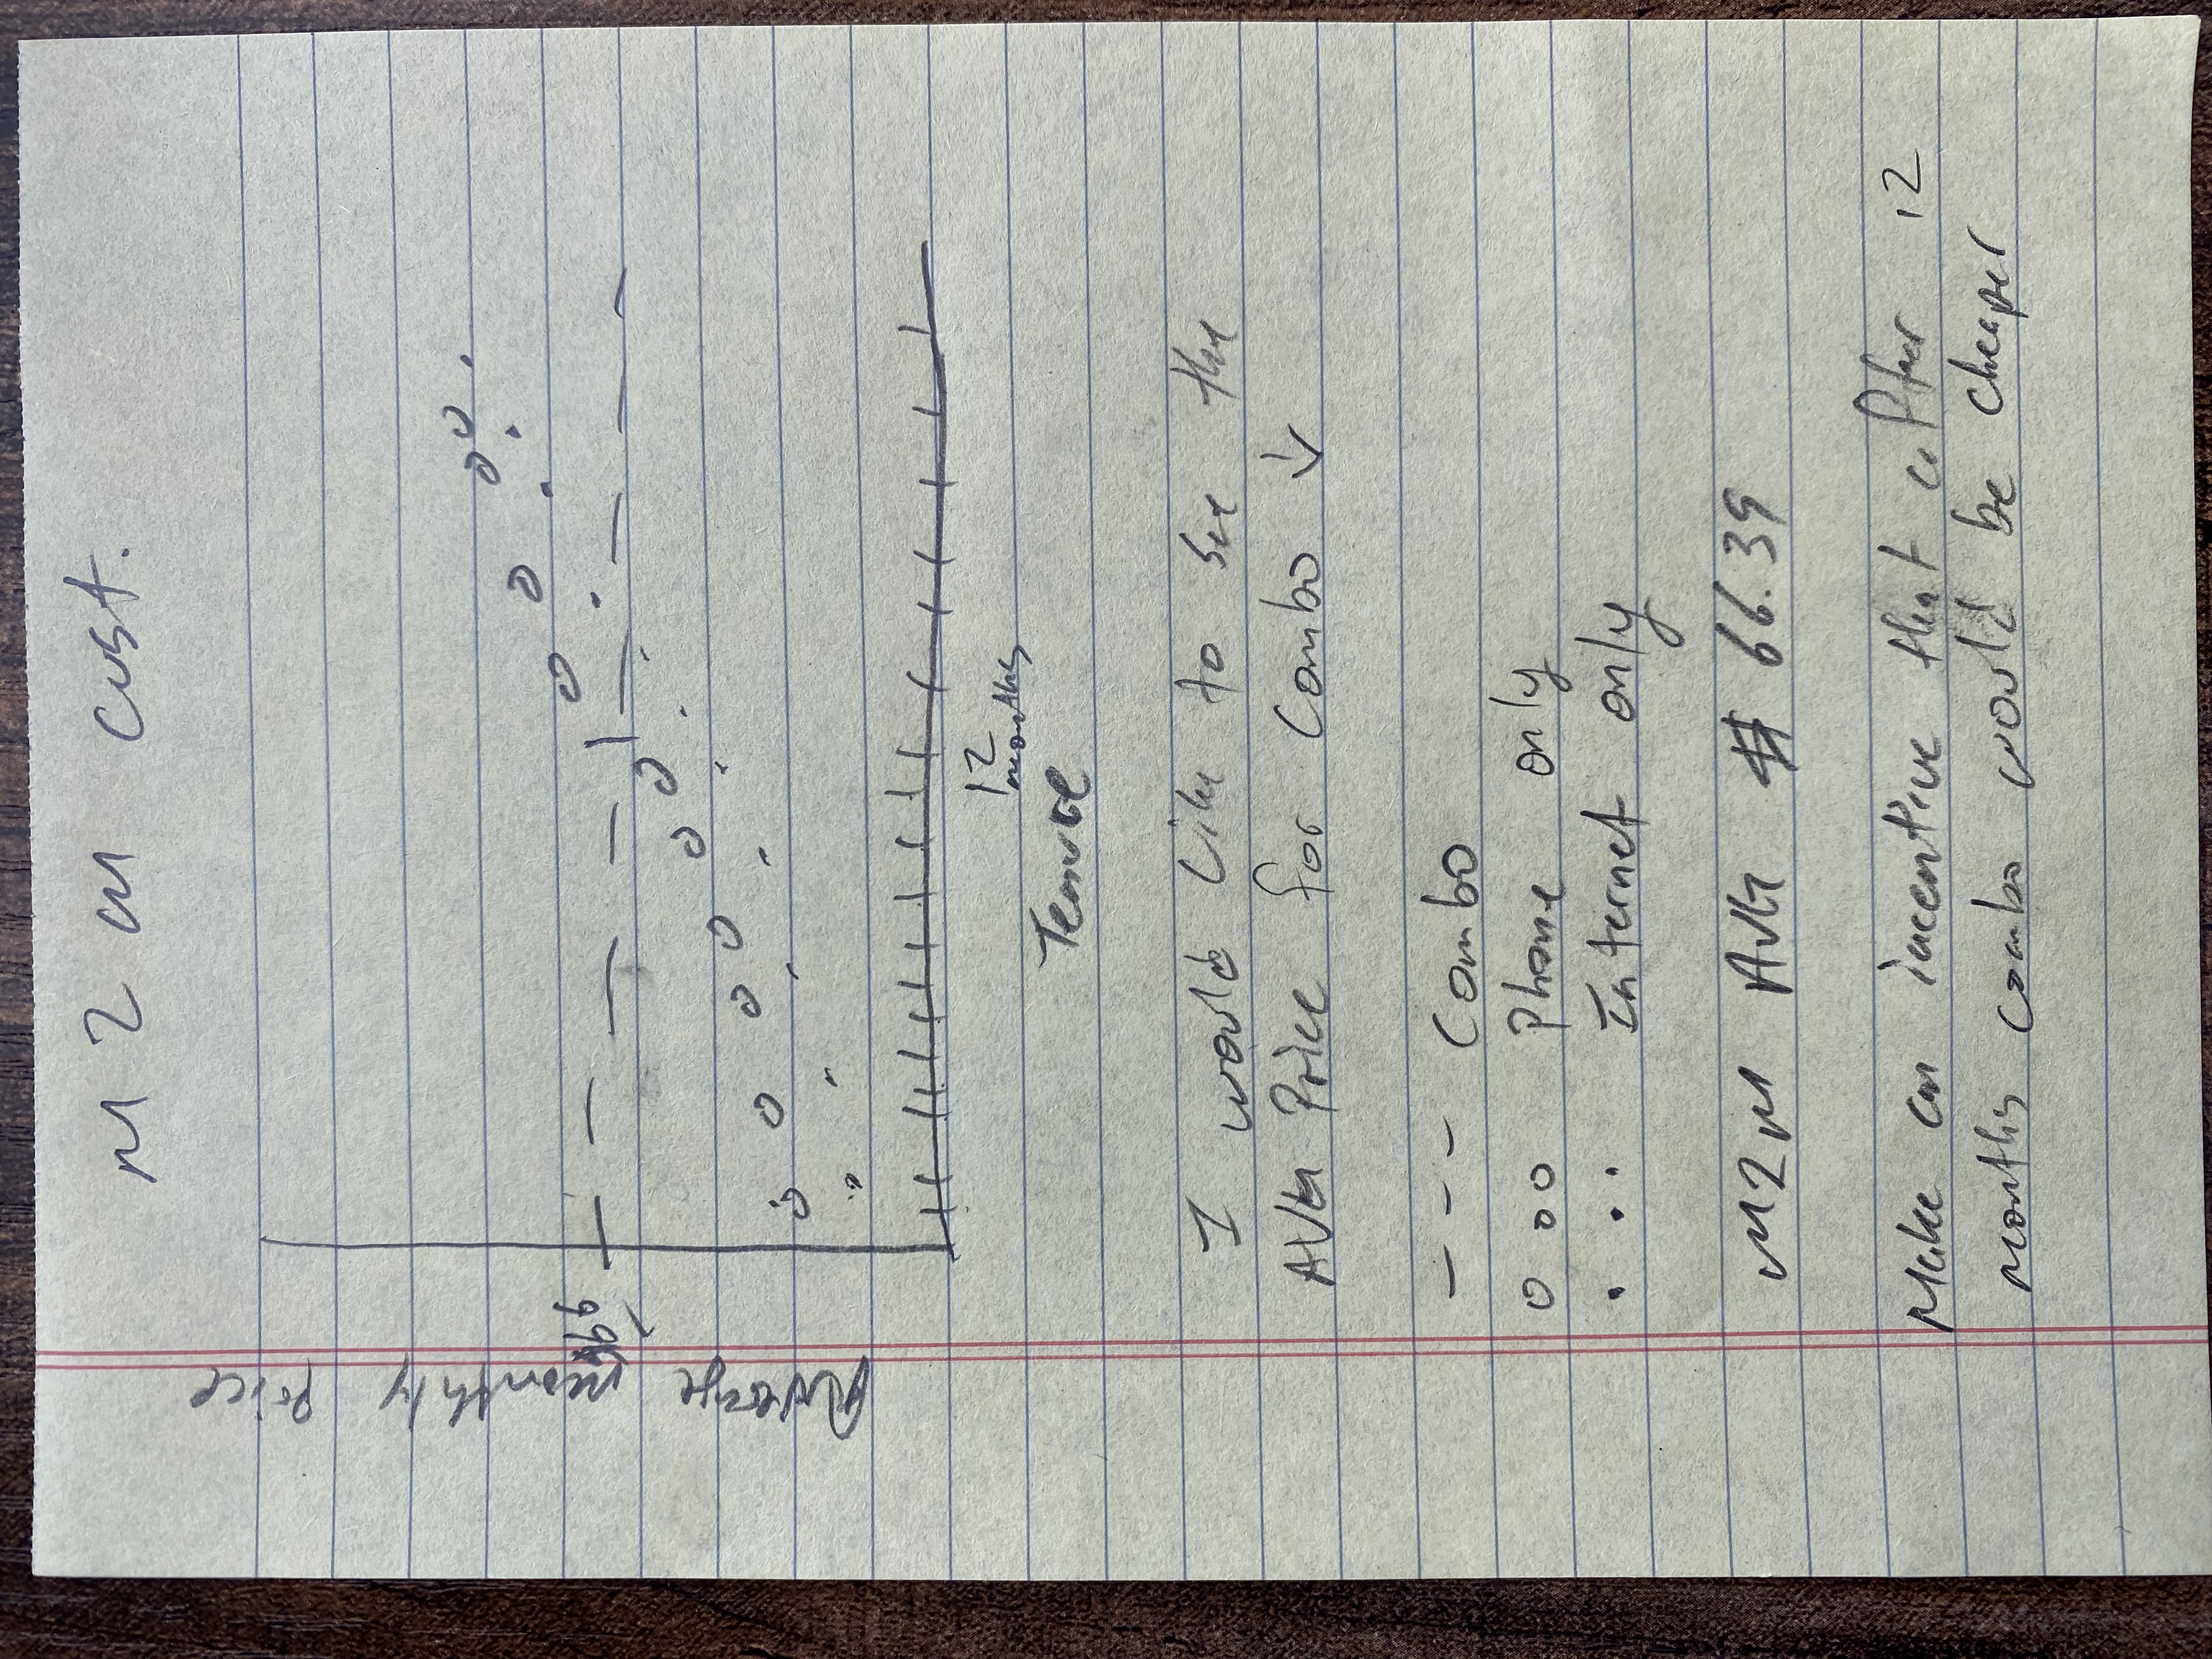 M2M cust.
Average monthly Price
$66
12
months
Tenure
I would like to see the
AVG Price for Combo ↓
--- Combo
o oo Phone only
. .. Internet only
M2M AVG $ 66.39
Make an incentive that after 12
months combo would be cheaper